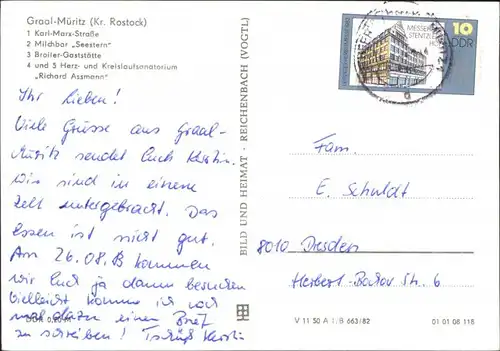 Graal-Müritz (Kr. Rostock)
1 Karl-Marx-Straße
2 Milchbar „Seestern"
3 Broiler-Gaststätte
4 und 5 Herz- und Kreislaufsanatorium
„Richard Assmann"
Ihr Lieben!
Viele Grüsse aus Graal-
Müritz sendet Euch Kerstin.
Wir sind in einem
Zelt untergebracht. Das
Essen ist nicht gut.
Am 26.08. kommen
wir Euch ja dann besuchen
Vielleicht komme ich noch
mal dazu einen Brief
zu schreiben! Tschüß Kerstin
BILD UND HEIMAT · REICHENBACH (VOGTL)
MESSEHAUS
STENTZLERS
HOF
10
DDR
Fam.
E. Schuldt
8010 Dresden
Str. 6
V 11 50 A 1/B 663/82
01 01 08 118